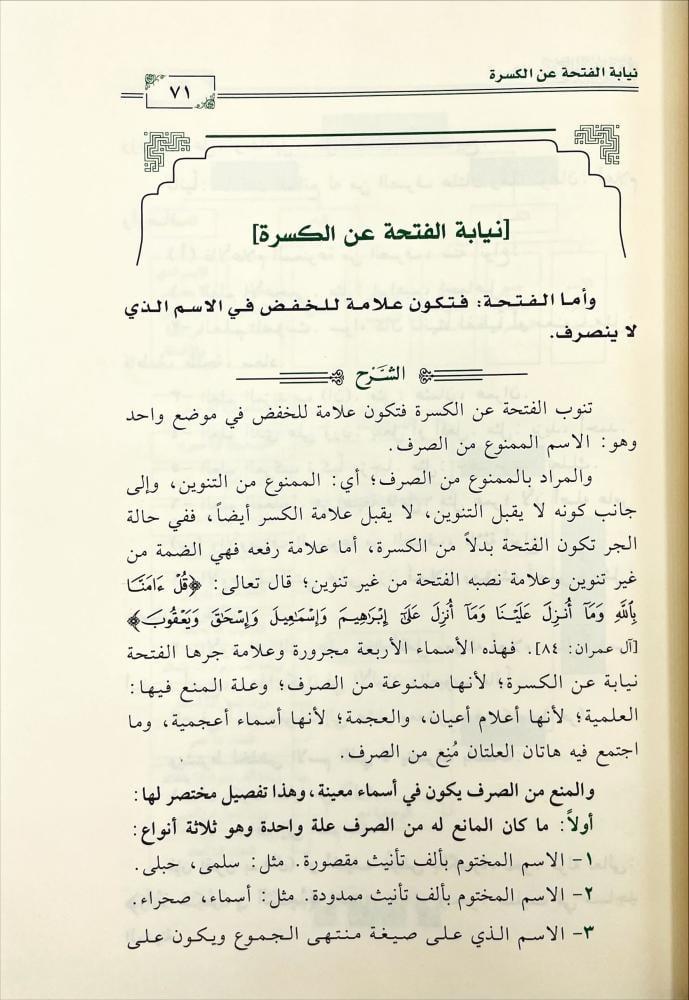 نيابة الفتحة عن الكسرة
٧١
[نيابة الفتحة عن الكسرة]
وأما الفتحة: فتكون علامة للخفض في الاسم الذي
لا ينصرف.
الشَّرْح
تنوب الفتحة عن الكسرة فتكون علامة للخفض في موضع واحد
وهو: الاسم الممنوع من الصرف.
والمراد بالممنوع من الصرف؛ أي: الممنوع من التنوين، وإلى
جانب كونه لا يقبل التنوين، لا يقبل علامة الكسر أيضاً، ففي حالة
الجر تكون الفتحة بدلاً من الكسرة، أما علامة رفعه فهي الضمة من
غير تنوين وعلامة نصبه الفتحة من غير تنوين؛ قال تعالى: ﴿قُلْ ءَامَنَّا
بِاللَّهِ وَمَآ أُنزِلَ عَلَيْنَا وَمَآ أُنزِلَ عَلَىٰٓ إِبْرَٰهِيمَ وَإِسْمَٰعِيلَ وَإِسْحَٰقَ وَيَعْقُوبَ﴾
[آل عمران: ٨٤]. فهذه الأسماء الأربعة مجرورة وعلامة جرها الفتحة
نيابة عن الكسرة؛ لأنها ممنوعة من الصرف؛ وعلة المنع فيها:
العلمية؛ لأنها أعلام أعيان، والعجمة؛ لأنها أسماء أعجمية، وما
اجتمع فيه هاتان العلتان مُنِع من الصرف.
والمنع من الصرف يكون في أسماء معينة، وهذا تفصيل مختصر لها:
أولاً: ما كان المانع له من الصرف علة واحدة وهو ثلاثة أنواع:
١- الاسم المختوم بألف تأنيث مقصورة. مثل: سلمى، حبلى.
٢- الاسم المختوم بألف تأنيث ممدودة. مثل: أسماء، صحراء.
٣- الاسم الذي على صيغة منتهى الجموع ويكون على